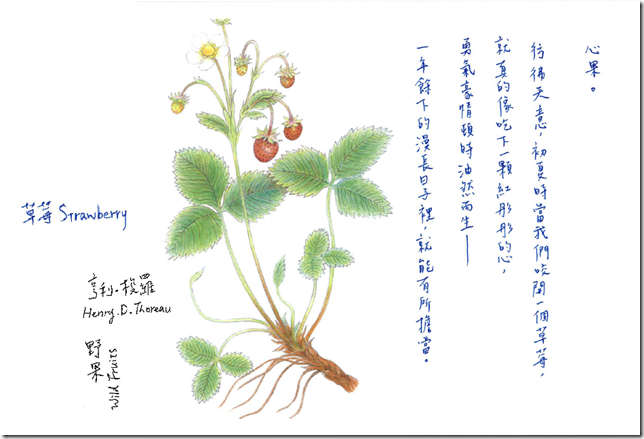 心果。
彷彿天意，初夏時當我們咬開一個草莓，
就真的像吃下一顆紅彤彤的心，
勇氣豪情頓時油然而生——
一年餘下的漫長日子裡，就能有所擔當。
草莓 Strawberry
亨利·梭羅
Henry.D.Thoreau
野果
Wild Fruits